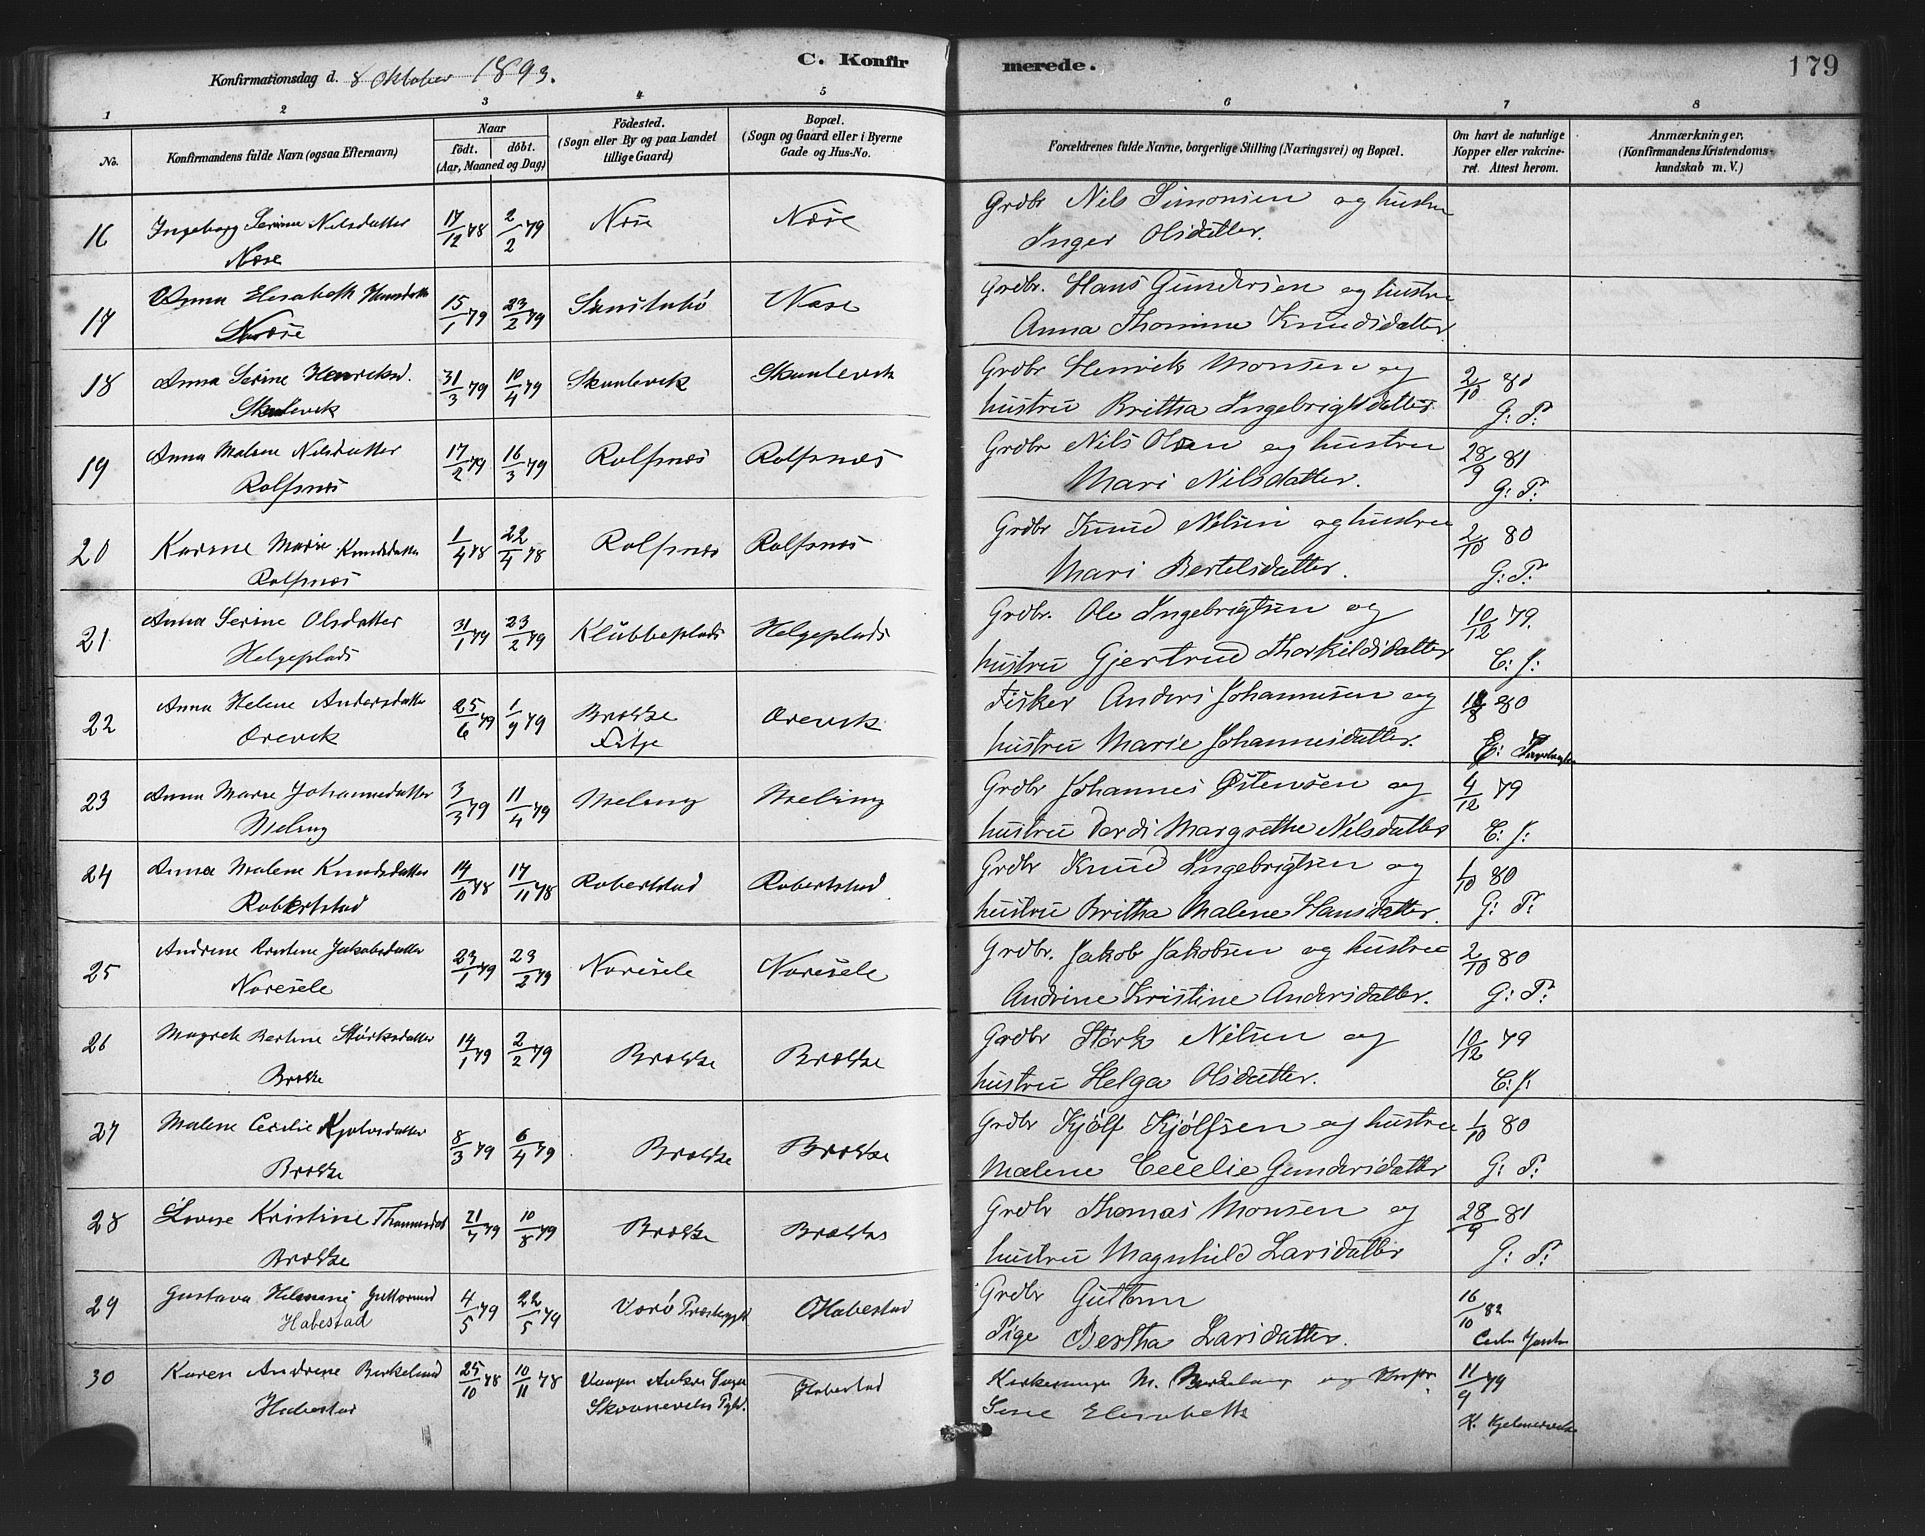 Konfirmationsdag d. 8 Oktober 1893.
C. Konfirmerede.
179
1 2 3 4 5 6 7 8
No.
Konfirmandens fulde Navn (ogsaa Efternavn)
Naar
født. døbt.
(Aar, Maaned og Dag)
Fødested.
(Sogn eller By og paa Landet
tillige Gaard)
Bopæl.
(Sogn og Gaard eller i Byerne
Gade og Hus-No.
Forældrenes fulde Navne, borgerlige Stilling (Næringsvei) og Bopæl.
Om havt de naturlige
Kopper eller vakcine-
ret. Attest herom.
Anmærkninger.
(Konfirmandens Kristendoms-
kundskab m. V.)
16 Ingeborg Serine Nilsdatter 17/12 78 2/2 79 Nese Næse Grdbr Nils Simonsen og hustru
Næse Inger Olsdatter.
17 Anna Elisabeth Hansdatter 15/1 79 23/2 79 Næse Grdbr. Hans Gundersen og hustru
Næse Anna Thomine Knudsdatter
18 Anna Serine Henriksd. 31/3 79 10/4 79 Skumlevik Skumlevik Grdbr Henrik Monsen og 2/10 80
Skumlevik hustru Britha Ingebrigtsdatter. G: T:
19 Anna Malene Nilsdatter 17/2 79 16/3 79 Rolfsnæs Rolfsnæs Grdbr Nils Olsen og hustru 28/9 81
Rolfsnæs Mari Nilsdatter. G: T:
20 Karene Marie Knudsdatter 1/4 78 22/4 78 Rolfsnæs Rolfsnæs Grdbr Knud Nilsen og hustru 2/10 80
Rolfsnæs Mari Bertelsdatter. G: T:
21 Anna Serine Olsdatter 31/1 79 23/2 79 Klubbeplads Helgeplads Grdbr. Ole Ingebrigtsen og 10/12 79.
Helgeplads hustru Gjertrud Thorkildsdatter C: J:
22 Anna Helene Andersdatter 25/6 79 1/9 79 Brække Orevik Fisker Anders Johannesen og 80
Orevik Fitje hustru Marie Johannesdatter.
23 Anna Marie Johannesdatter 3/3 79 11/4 79 Meling Meling Grdbr Johannes Østensen og 4/12 79
Meling hustru Dordi Margrethe Nilsdatter C: J:
24 Anna Malene Knudsdatter 14/10 78 17/11 78 Robertstad Robertstad Grdbr Knud Ingebrigtsen og 1/10 80
Robertstad hustru Britha Malene Hansdatter. G: T:
25 Andrine Kristine Jakobsdatter 23/1 79 23/2 79 Noresele Noresele Grdbr. Jakob Jakobsen og hustru 2/10 80
Noresele Andrine Kristine Andersdatter. G: T:
26 Magrete Bertine Størksdatter 14/1 79 2/2 79 Brække Brække Grdbr Størk Nilsen og 10/12 79
Brække hustru Helga Olsdatter. C: J:
27 Malene Cecilie Kjølvsdatter 8/3 79 6/4 79 Brække Brække Grdbr Kjølf Kjølfsen og hustru 1/10 80
Brække Malene Cecelie Gundersdatter G: T:
28 Lovise Kristine Thomasdat 21/7 79 10/8 79 Brække Brække Grdbr Thomas Monsen og 28/9 81
Brække hustru Magnhild Larsdatter G: T:
29 Gustava Guttormsd 4/5 79 22/5 79 Habestad Grdbr Guttorm 16/10 82
Habestad Pige Bertha Larsdatter.
30 Karen Andrine Birkeland 25/10 78 10/11 78 Habestad Kirkesanger M. Birkeland og 11/9 79
Habestad Elisabeth